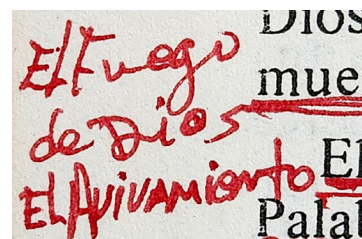 El Fuego
de Dios
El Avivamiento
Dios
mue
El
Palab